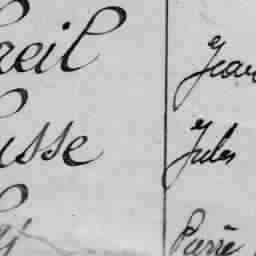 reil Jean
usse Jules
Pierre